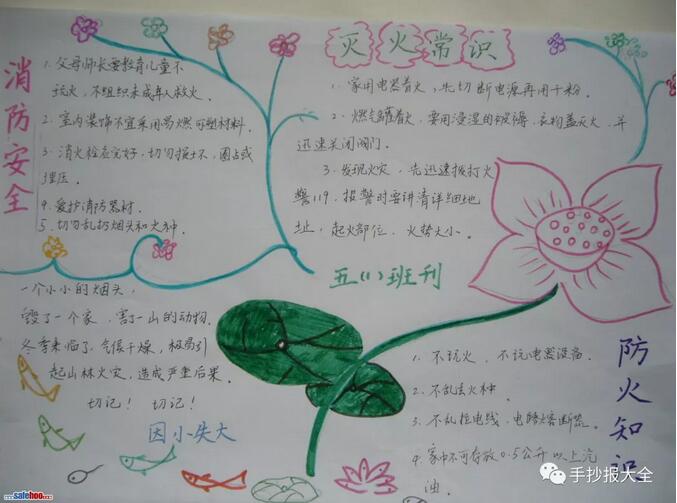 消防安全
1. 父母师长要教育儿童不
玩火，不组织未成年人救火。
2. 室内装饰不宜采用易燃可塑材料。
3. 消火栓应完好，切勿损坏、圈占或
埋压。
4. 爱护消防器材。
5. 切勿乱扔烟头和火种。
灭火常识
1. 家用电器着火，先切断电源再用干粉。
2. 燃气罐着火，要用浸湿的被褥、衣物盖灭火，并
迅速关闭阀门。
3. 发现火灾，先迅速拨打火
警119。报警时要讲清详细地
址，起火部位，火势大小。
五(1)班刊
一个小小的烟头，
毁了一个家，害了一山的动物。
冬季来临了，气候干燥，极易引
起山林火灾，造成严重后果。
切记！ 切记！
因小失大
防火知识
1. 不玩火，不玩电器设备。
2. 不乱丢火种。
3. 不乱拉电线，电路熔断器。
4. 家中不可存放0.5公升以上汽
油。
手抄报大全
www.safehoo.com